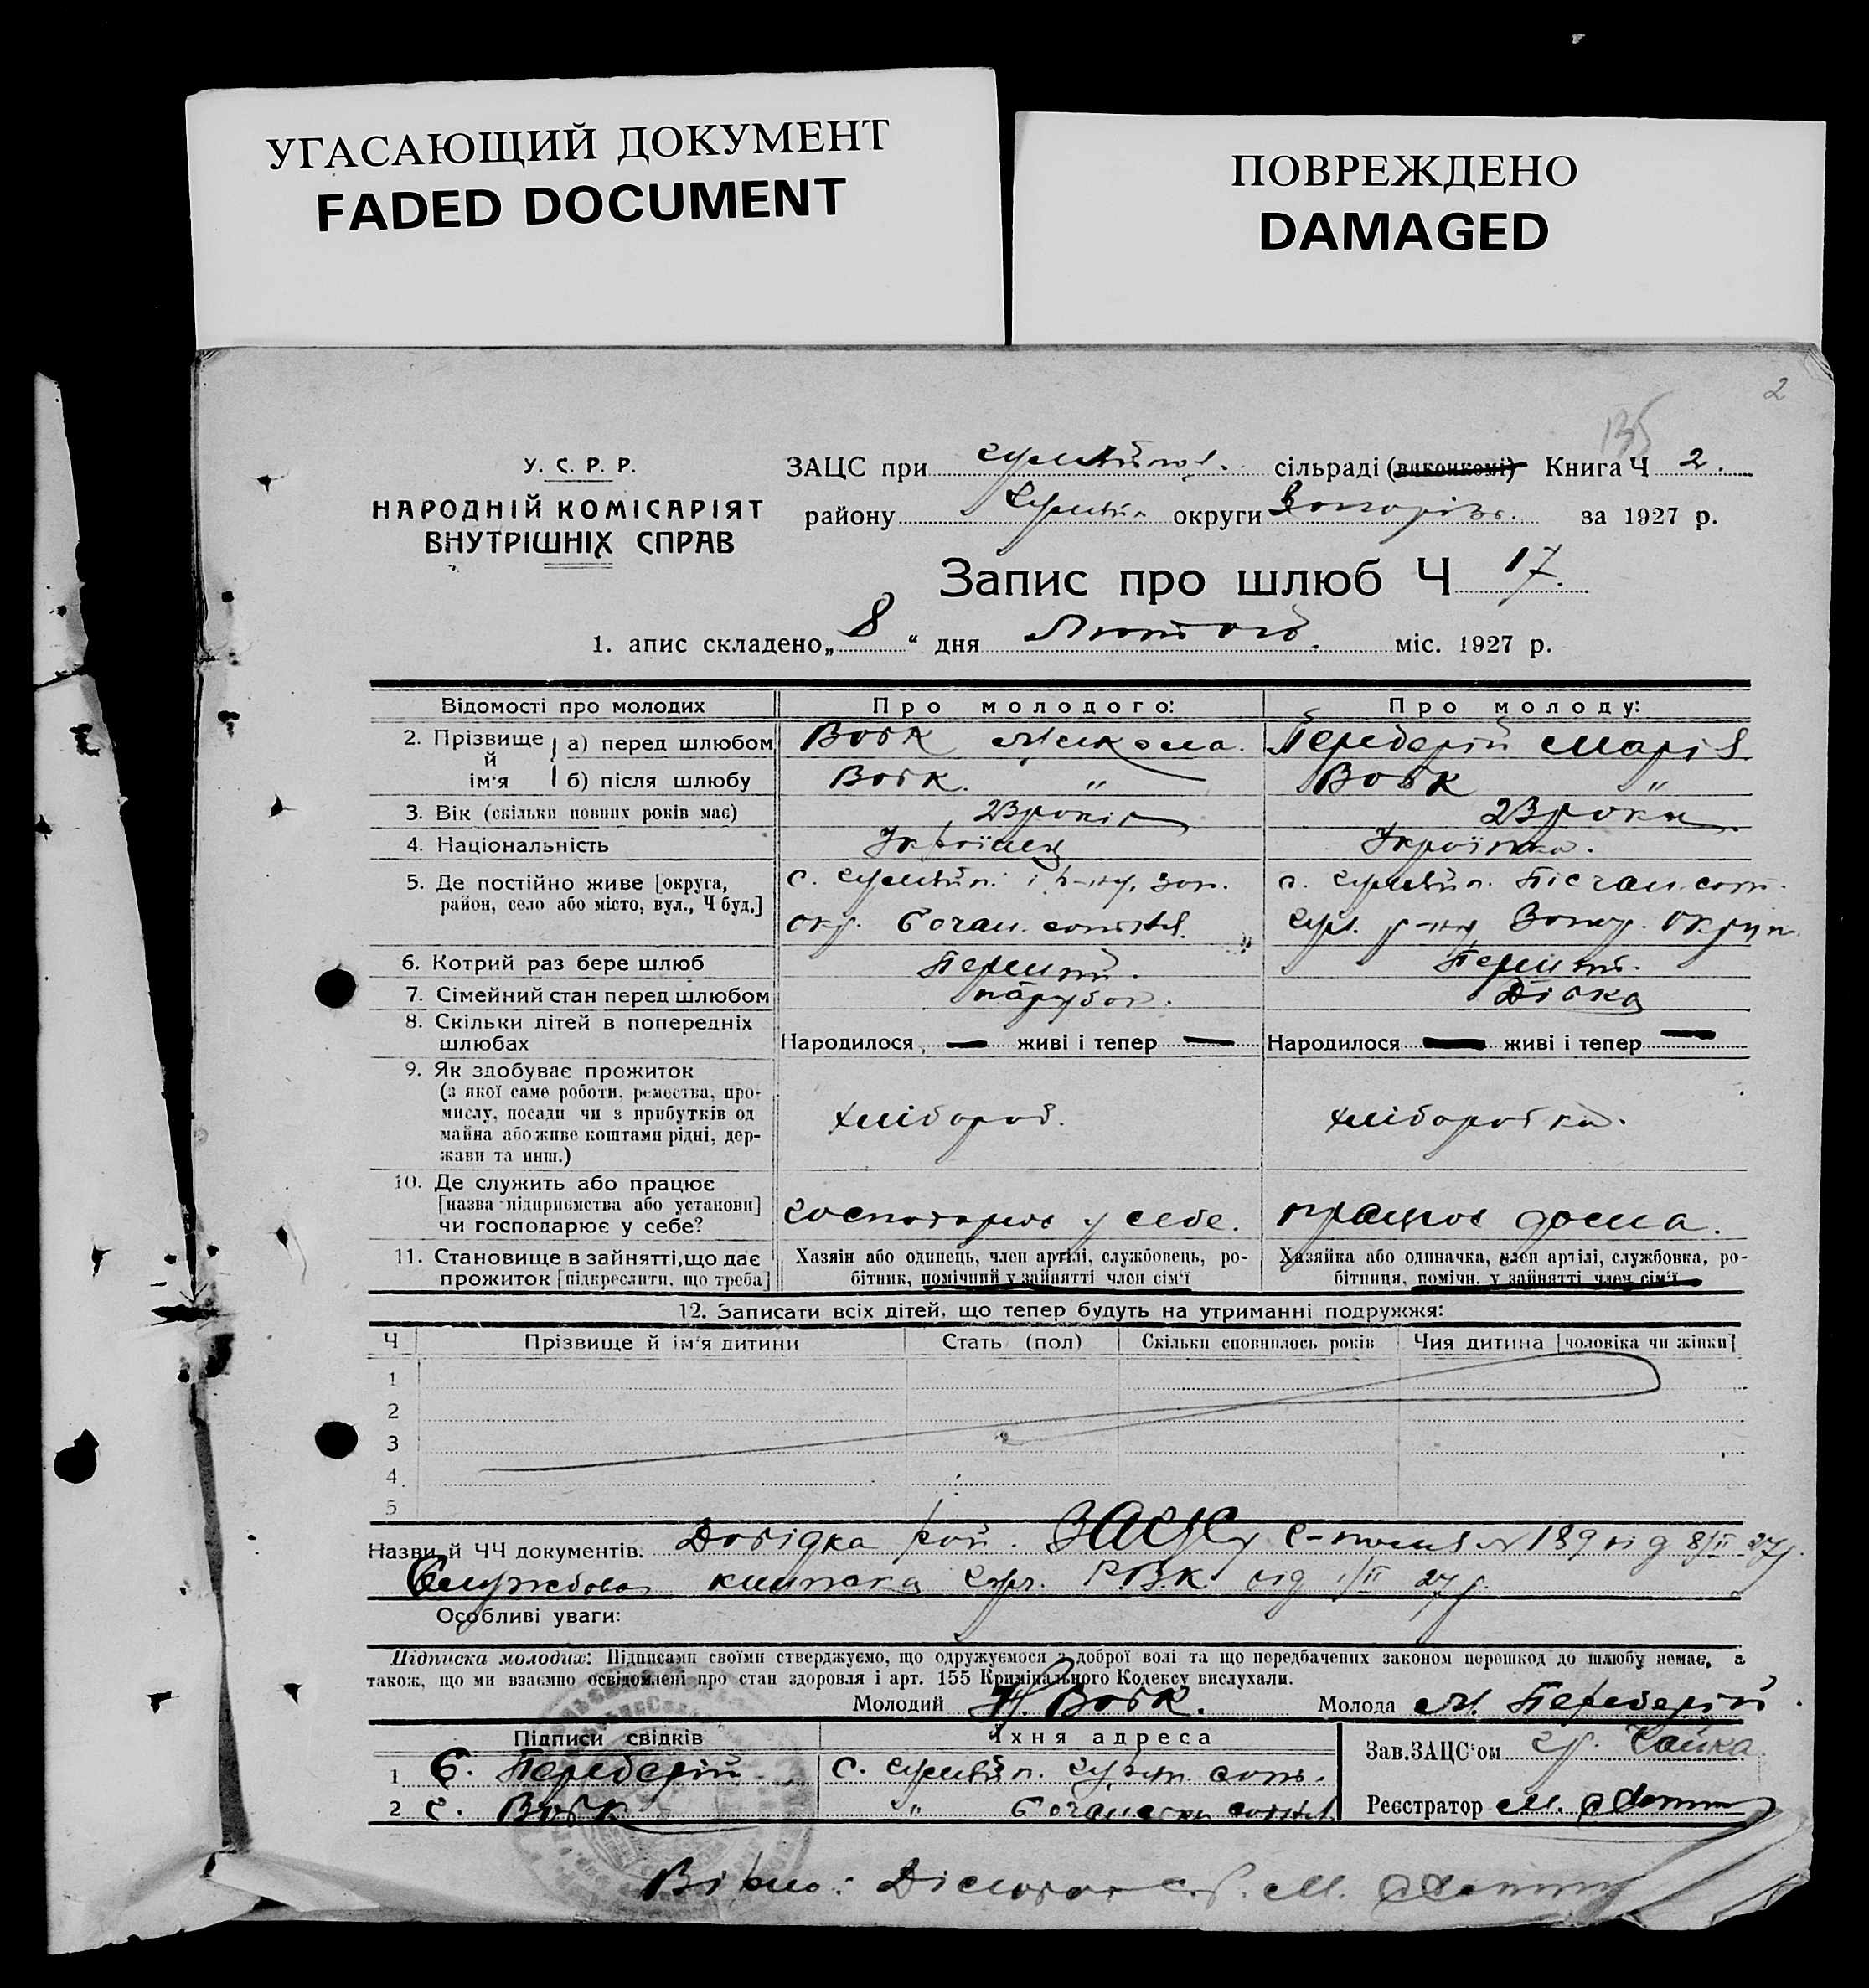 УГАСАЮЩИЙ ДОКУМЕНТ
FADED DOCUMENT
ПОВРЕЖДЕНО
DAMAGED
2
135
У. С. Р. Р.
НАРОДНІЙ КОМІСАРІЯТ
ВНУТРІШНІХ СПРАВ
ЗАЦС при сільраді (виконкомі) Книга Ч 2.
району округи за 1927 р.
Запис про шлюб Ч 17.
1. апис складено „ 8 “ дня Лютого. міс. 1927 р.
Відомості про молодих Про молодого: Про молоду:
2. Прізвище й ім'я а) перед шлюбом Вовк Микола. Переберій Марія
б) після шлюбу Вовк. " Вовк "
3. Вік (скільки повних років має) 23 років 23 роки
4. Національність Українец Українка.
5. Де постійно живе [округа,
район, село або місто, вул., Ч буд.]
с. зап. с. Пісчан. сот.
окр. сотня. р-ну Запор. округи
6. Котрий раз бере шлюб Перший. Перший.
7. Сімейний стан перед шлюбом парубок. Дівка
8. Скільки дітей в попередніх
шлюбах Народилося — живі і тепер — Народилося — живі і тепер —
9. Як здобуває прожиток
(з якої саме роботи, ремества, про-
мислу, посади чи з прибутків од
майна або живе коштами рідні, дер-
жави та инш.)
хлібороб. хліборобка.
10. Де служить або працює
[назва підприємства або установи]
чи господарює у себе? господарює у себе. працює дома.
11. Становище в зайнятті, що дає
прожиток [підкреслити, що треба]
Хазяін або одинець, член артілі, службовець, ро-
бітник, помічний у зайнятті член сім'ї
Хазяйка або одиначка, член артілі, службовка, ро-
бітниця, помічн. у зайнятті член сім'ї
12. Записати всіх дітей, що тепер будуть на утриманні подружжя:
Ч Прізвище й ім'я дитини Стать (пол) Скільки сповнилось років Чия дитина [чоловіка чи жінки]
1
2
3
4
5
Назви й ЧЧ документів. Довідка рай. ЗАЦСу № 189 від 8/II 27р.
Службова книжка Р.В.К. від 1/II 27 р.
Особливі уваги:
Підписка молодих: Підписами своїми стверджуємо, що одружуємося з доброї волі та що передбачених законом перешкод до шлюбу немає, а
також, що ми взаємно освідомлені про стан здоровля і арт. 155 Кримінального Кодексу вислухали.
Молодий Н. Вовк. Молода М. Переберій.
Підписи свідків Їхня адреса
1 Є. Переберій с. сотн.
2 Є. Вовк " сотня
Зав. ЗАЦС'ом Чайка
Реєстратор М.
Вірно: М.